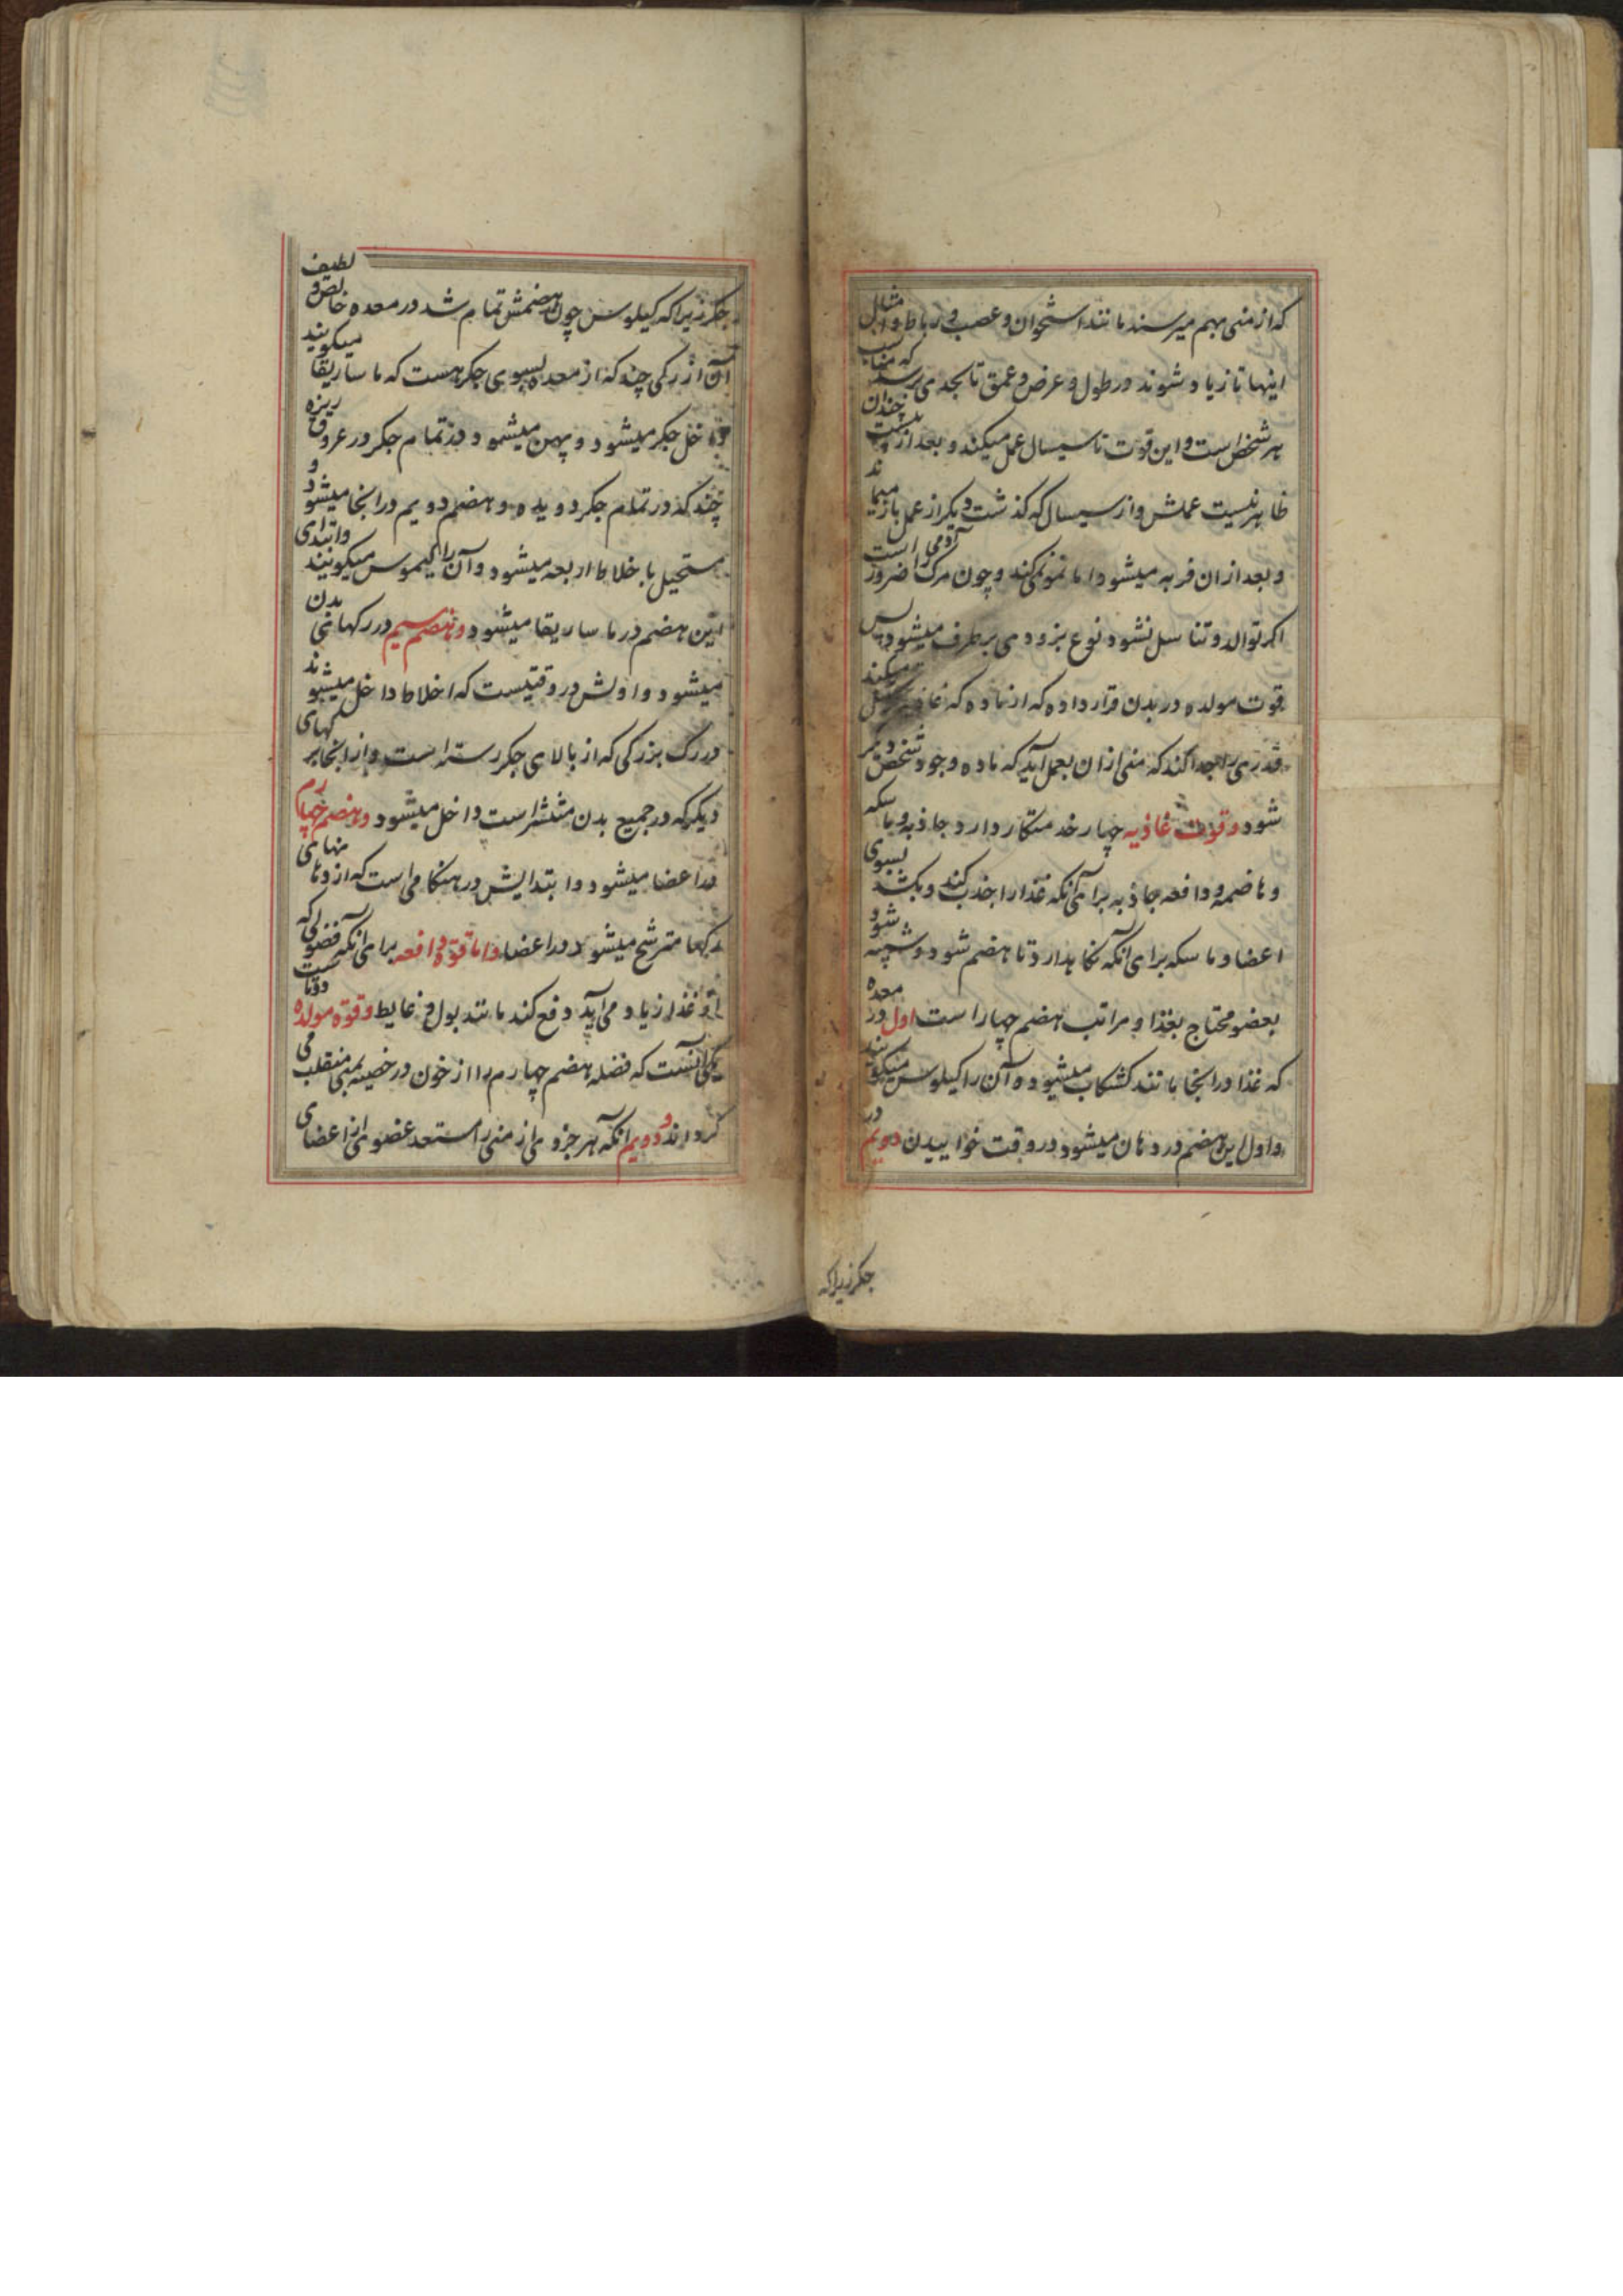 که از منی بهم میرسند مانند استخوان و عصب و رباط و امثال
اینها تا زیاد شوند در طول و عرض و عمق تا بحدی برسد که مناسب
هر شخص است و این قوت تا سیسال عمل میکند و بعد از بیست چندان
ظاهر نیست عملش و از سیسال که گذشت دیگر از عمل باز میماند
و بعد از ان فربه میشود اما نمو نمی‌کند و چون مرک آدمی را ضرور است
اکر توالد و تناسل نشود نوع بزودی برطرف میشود پس
قوت مولده در بدن قرار داده که از ماده که غاذیه میکند
قدری را جدا کند که منی از ان بعمل آید که ماده وجود شخص دیگر
شود و قوت غاذیه چهار خدمتکار دارد جاذبه و ماسکه
و هاضمه و دافعه جاذبه برای آنکه غذا را جذب کند و بکشد بسوی
اعضا و ماسکه برای آنکه نکاهدارد تا هضم شود و شبیه شود
بعضو محتاج بغذا و مراتب هضم چهار است اول در معده
که غذا در انجا مانند کشکاب میشود و آن را کیلوس میکویند
و اول این هضم در دهان میشود در وقت خواییدن دویم در
جکر زیرا که
جکر زیرا که کیلوس چون هضمش تمام شد در معده خالص و لطیف
آن از رکی چند که از معده بسوی جکر هست که ماساریقا میکویند
داخل جکر میشود و پهن میشود در تمام جکر در عروق ریزه
چند که در تمام جکر دویده و هضم دویم در انجا میشود و
مستحیل باخلاط اربعه میشود و آن را کیموس میکویند و ابتدای
این هضم در ماساریقا میشود و هضم سیم در رکهای بدن
میشود و اولش در وقتیست که اخلاط داخل میشوند
در رک بزرکی که از بالای جکر رسته است و از انجا برکهای
دیکر که در جمیع بدن منتشر است داخل میشود و هضم چهارم
در اعضا میشود و ابتدایش در هنکامی است که از دهنهای
رکها مترشح میشود در اعضا و اما قوة دافعه برای آنکه فضولی که
از غذا زیاد می‌آید دفع کند مانند بول و غایط و قوة مولده دوتاست
یکی آنست که فضله هضم چهارم را از خون در خصیه بمنی منقلب می
کرداند و دویم آنکه هر جزوی از منی را مستعد عضوی از اعضای